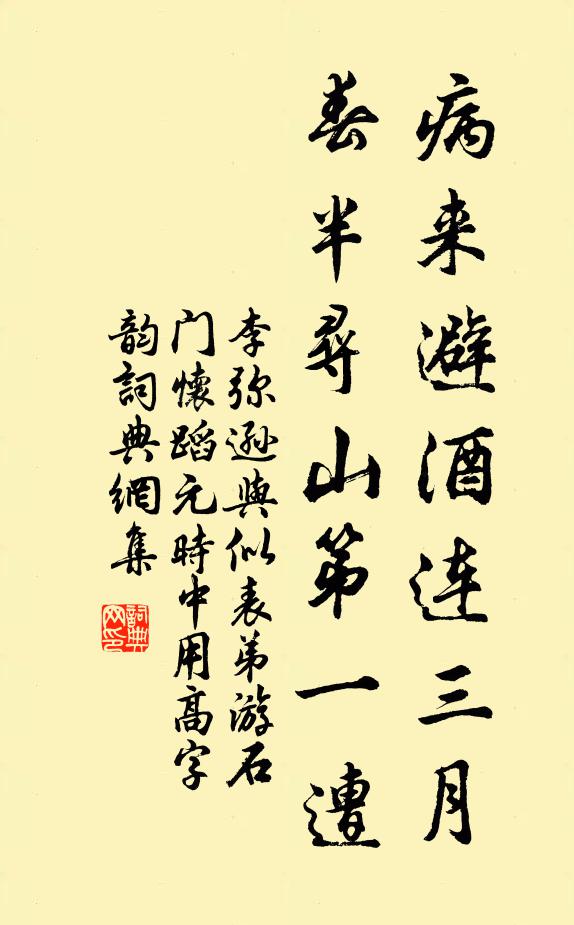 病来避酒連三月
春半尋山第一遭
李弥遜與似表弟游石
门懷蹈元時中用高字
韵詞典網集
詞典網印